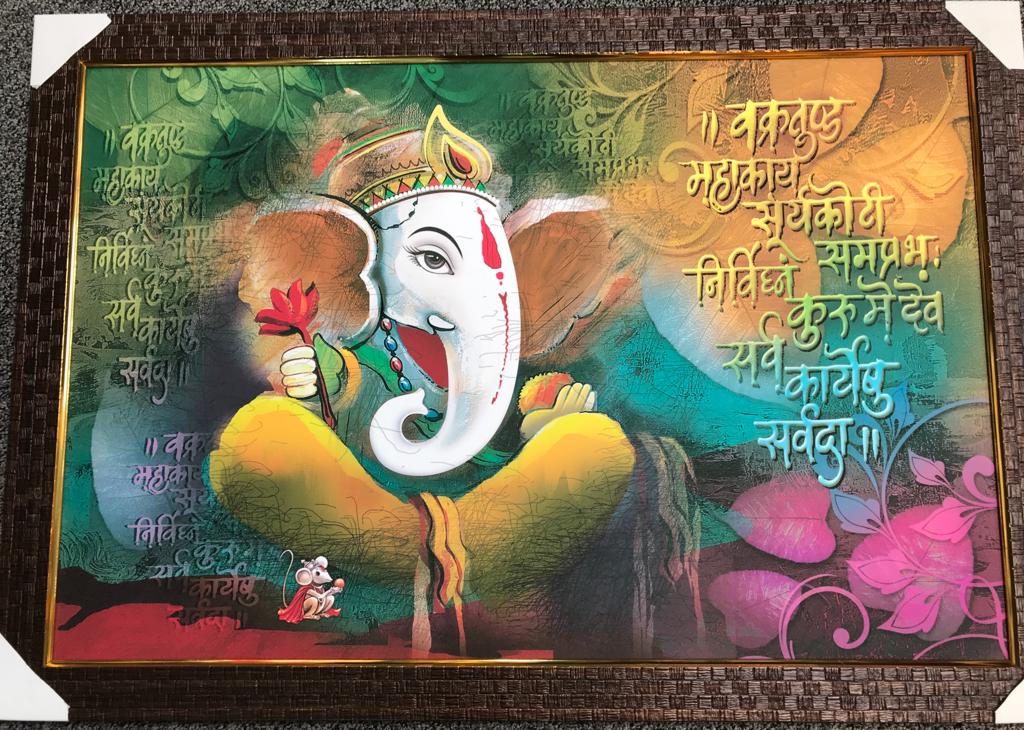 ॥ वक्रतुण्ड
महाकाय
सूर्यकोटी
समप्रभः
निर्विघ्ने
कुरु मे देव
सर्व
कार्येषु
सर्वदा ॥
॥ वक्रतुण्ड
महाकाय
सूर्यकोटी
निर्विघ्ने समप्र
कुरु
सर्व
कार्येषु
सर्वदा ॥
वक्रतुण्ड
महाकाय
सूर्यकोटी
समप्रभः
॥ वक्र
महाकाय
सूर्य
निर्विघ्ने
कुरु
सर्व
कार्येषु
सर्वदा ॥